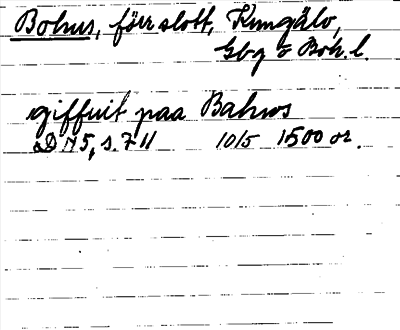 Bohus, förr slott, Kungälv,
Gbg o Boh. l.
giffuit paa Bahws
D 75, s. 711 10/5 1500 or.